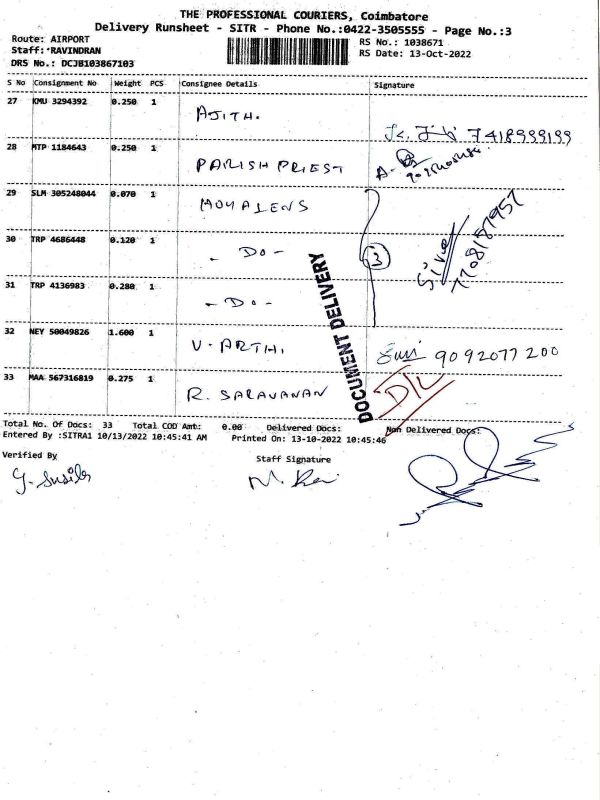 THE PROFESSIONAL COURIERS, Coimbatore
Delivery Runsheet - SITR - Phone No.:0422-3505555 - Page No.:3
Route: AIRPORT
RS No.: 1038671
Staff: RAVINDRAN
RS Date: 13-Oct-2022
DRS No.: DCJB103867103
S No Consignment No Weight PCS Consignee Details Signature
27 KMU 3294392 0.250 1 AJITH. 7418999199
28 MTP 1184643 0.250 1 PARISH PRIEST
29 SLM 305248044 0.070 1
30 TRP 4686448 0.120 1 - DO - 3 Siva 7708157957
31 TRP 4136983 0.280 1 - DO -
DOCUMENT DELIVERY
32 NEY 50049826 1.600 1 V. ARTHI. 9092077200
33 MAA 567316819 0.275 1 R. SARAVANAN D/L
Total No. Of Docs: 33 Total COD Amt: 0.00 Delivered Docs: Non Delivered Docs:
Entered By :SITRA1 10/13/2022 10:45:41 AM Printed On: 13-10-2022 10:45:46
Verified By
Staff Signature